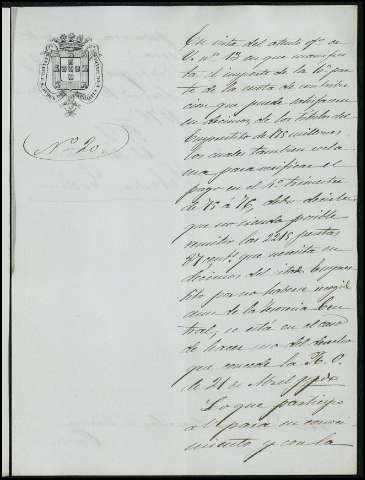 Nº 20.
En vista del atento of. de
V. nº 13 en que manifies-
ta el importe de la 1ª par-
te de la cuota de contribu-
cion que puede satisfacer
en décimos de los titulos del
Emprestito de 175 millones
los cuales tambien recla-
ma para verificar el
pago en el 4º trimestre
de 75 á 76, debo decirle
que no siendo posible
remitir las 2215, pesetas
87 que necesita en
decimos del citado Empres-
tito por no haberse recibi-
do de la Central, se está en el caso
de hacer uso del derecho
que concede la R. O.
de 21 de Abril ppdo
Lo que participo
a V. para su conoci-
miento y con la